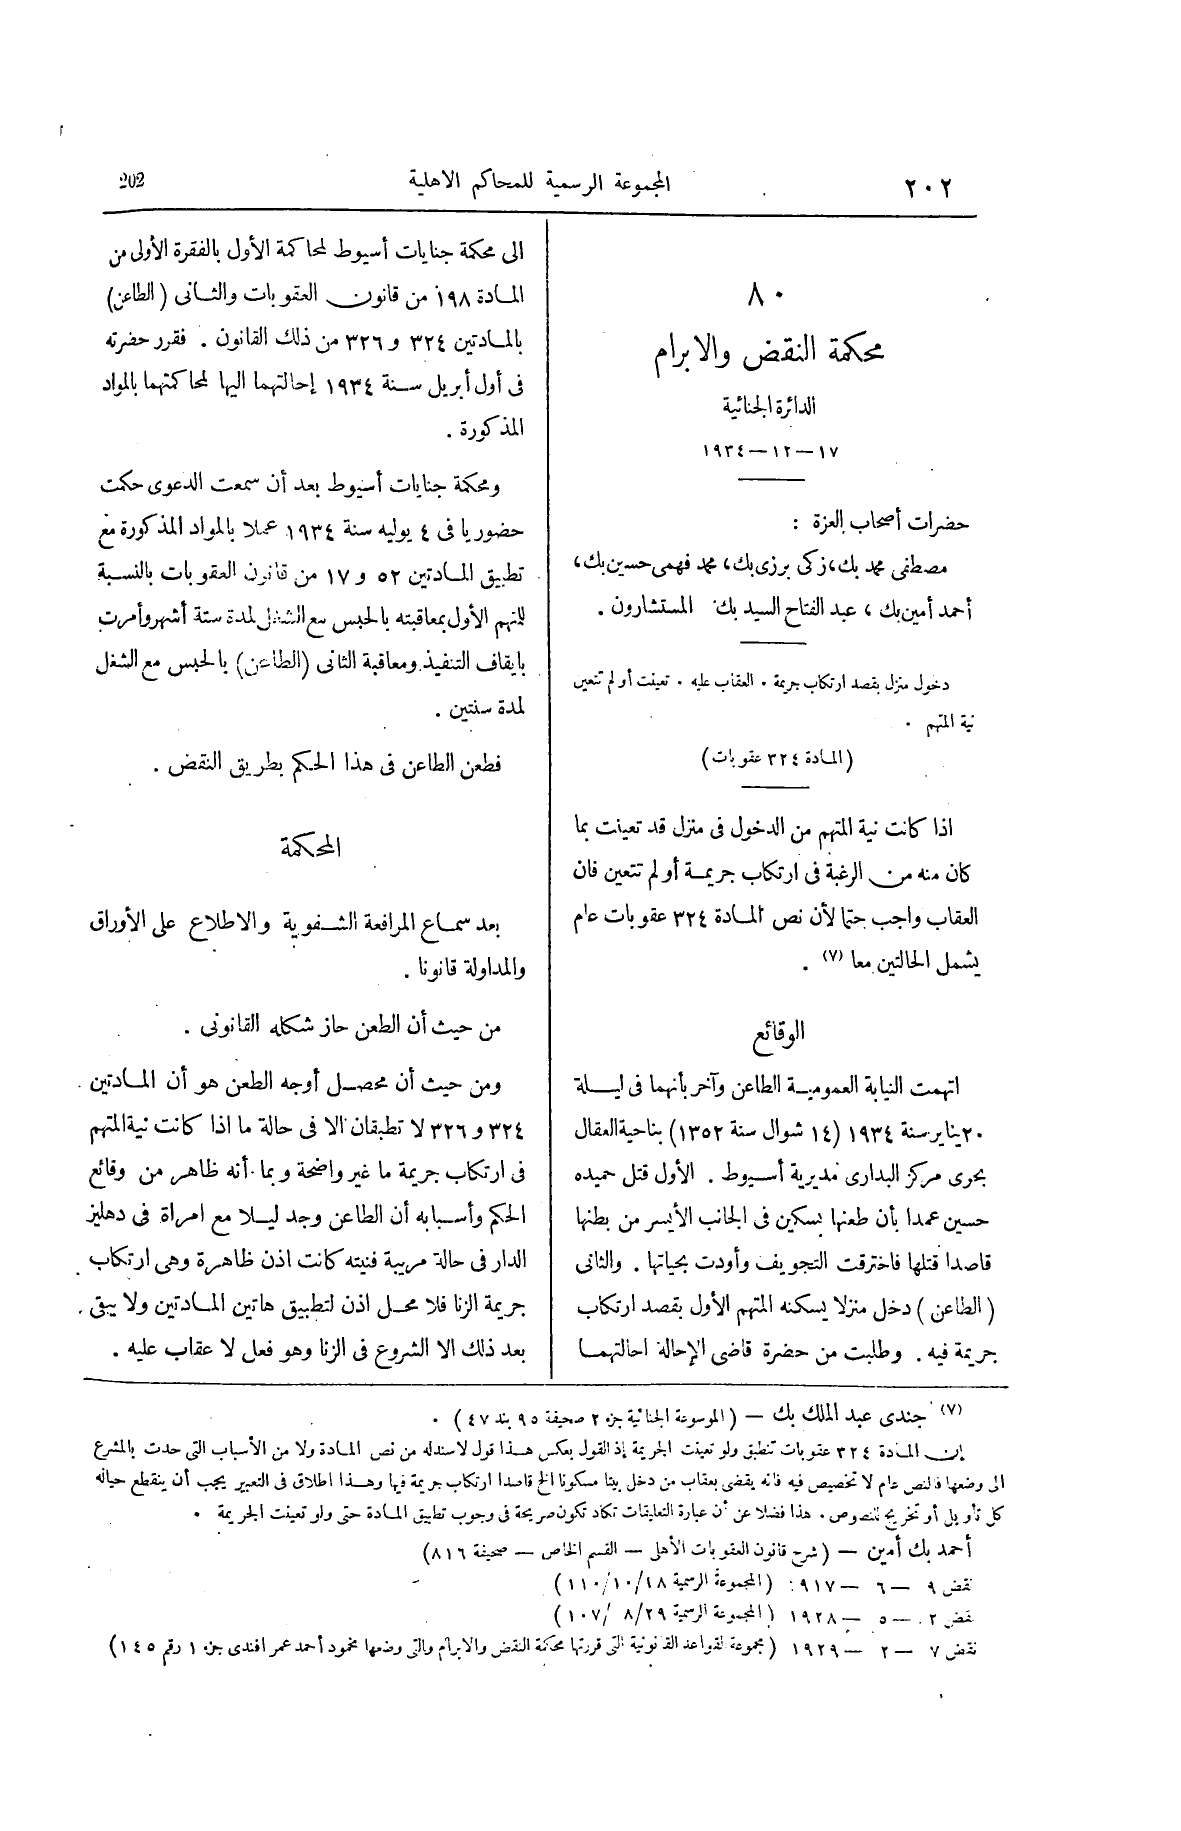 ٢٠٢
المجموعة الرسمية للمحاكم الاهلية
202
٨٠
محكمة النقض والابرام
الدائرة الجنائية
١٧ — ١٢ — ١٩٣٤
حضرات أصحاب العزة :
مصطفى محمد بك، زكى برزى بك، محمد فهمى حسين بك،
أحمد أمين بك ، عبد الفتاح السيد بك المستشارون .
دخول منزل بقصد ارتكاب جريمة . العقاب عليه . تعينت أو لم تتعين
نية المتهم .
(المادة ٣٢٤ عقوبات)
اذا كانت نية المتهم من الدخول فى منزل قد تعينت بما
كان منه من الرغبة فى ارتكاب جريمة أو لم تتعين فان
العقاب واجب حتما لأن نص المادة ٣٢٤ عقوبات عام
يشمل الحالتين معا (٧) .
الوقائع
اتهمت النيابة العمومية الطاعن وآخر بأنهما فى ليلة
٢٠ يناير سنة ١٩٣٤ (١٤ شوال سنة ١٣٥٢) بناحية العقال
بحرى مركز البدارى مديرية أسيوط . الأول قتل حميده
حسين عمدا بأن طعنها بسكين فى الجانب الأيسر من بطنها
قاصدا قتلها فاخترقت التجويف وأودت بحياتها . والثانى
(الطاعن) دخل منزلا يسكنه المتهم الأول بقصد ارتكاب
جريمة فيه . وطلبت من حضرة قاضى الإحالة احالتهما
الى محكمة جنايات أسيوط لمحاكمة الأول بالفقرة الأولى من
المادة ١٩٨ من قانون العقوبات والثانى (الطاعن)
بالمادتين ٣٢٤ و ٣٢٦ من ذلك القانون . فقرر حضرته
فى أول أبريل سنة ١٩٣٤ إحالتهما اليها لمحاكمتهما بالمواد
المذكورة .
ومحكمة جنايات أسيوط بعد أن سمعت الدعوى حكمت
حضوريا فى ٤ يوليه سنة ١٩٣٤ عملا بالمواد المذكورة مع
تطبيق المادتين ٥٢ و ١٧ من قانون العقوبات بالنسبة
للتهم الأول بمعاقبته بالحبس مع الشغل لمدة ستة أشهر وأمرت
بايقاف التنفيذ ومعاقبة الثانى (الطاعن) بالحبس مع الشغل
لمدة سنتين .
فطعن الطاعن فى هذا الحكم بطريق النقض .
المحكمة
بعد سماع المرافعة الشفوية والاطلاع على الأوراق
والمداولة قانونا .
من حيث أن الطعن حاز شكله القانونى .
ومن حيث أن محصل أوجه الطعن هو أن المادتين
٣٢٤ و ٣٢٦ لا تطبقان الا فى حالة ما اذا كانت نية المتهم
فى ارتكاب جريمة ما غير واضحة وبما أنه ظاهر من وقائع
الحكم وأسبابه أن الطاعن وجد ليلا مع امراة فى دهليز
الدار فى حالة مريبة فنيته كانت اذن ظاهرة وهى ارتكاب
جريمة الزنا فلا محل اذن لتطبيق هاتين المادتين ولا يبقى
بعد ذلك الا الشروع فى الزنا وهو فعل لا عقاب عليه .
(٧) جندى عبد الملك بك — (الموسوعة الجنائية جزء ٢ صحيفة ٩٥ بند ٤٧) .
إن المادة ٣٢٤ عقوبات تنطبق ولو تعينت الجريمة إذ القول بعكس هذا قول لا سند له من نص المادة ولا من الأسباب التى حدت بالمشرع
الى وضعها فالنص عام لا تخصيص فيه فانه يقضى بعقاب من دخل بيتا مسكونا الخ قاصدا ارتكاب جريمة فيها وهذا اطلاق فى التعبير يجب أن ينقطع حياله
كل تأويل أو تخريج للنصوص . هذا فضلا عن أن عبارة التعليقات تكاد تكون صريحة فى وجوب تطبيق المادة حتى ولو تعينت الجريمة .
أحمد بك أمين — (شرح قانون العقوبات الأهلى — القسم الخاص — صحيفة ٨١٦)
نقض ٩ — ٦ — ٩١٧ : (المجموعة الرسمية ١٨/١٠/١١٠)
نقض ٢ — ٥ — ١٩٢٨ (المجموعة الرسمية ٢٩/٨/١٠٧)
نقض ٧ — ٢ — ١٩٢٩ (مجموعة القواعد القانونية التى قررتها محكمة النقض والابرام والتى وضعها محمود أحمد عمر افندى جزء ١ رقم ١٤٥)